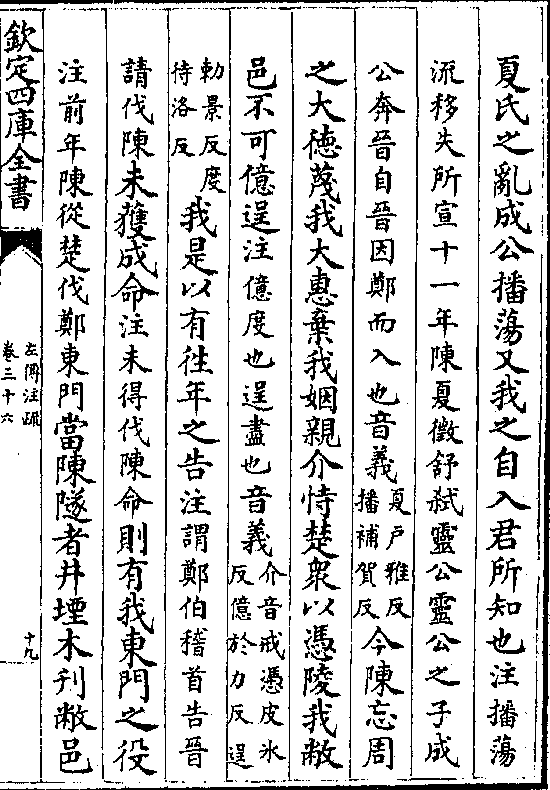 夏氏之亂成公播蕩又我之自入君所知也注播蕩
流移失所宣十一年陳夏徵舒弑靈公靈公之子成
公奔晉自晉因鄭而入也音義夏戸雅反播補賀反今陳忘周
之大徳蔑我大惠棄我姻親介恃楚衆以憑陵我敝
邑不可億逞注億度也逞盡也音義介音戒憑皮氷反億於力反逞
勅景反度待洛反我是以有往年之告注謂鄭伯稽首告晉
請伐陳未獲成命注未得伐陳命則有我東門之役
注前年陳從楚伐鄭東門當陳隧者井堙木刋敝邑
欽定四庫全書
左傳注疏
卷三十六
十九